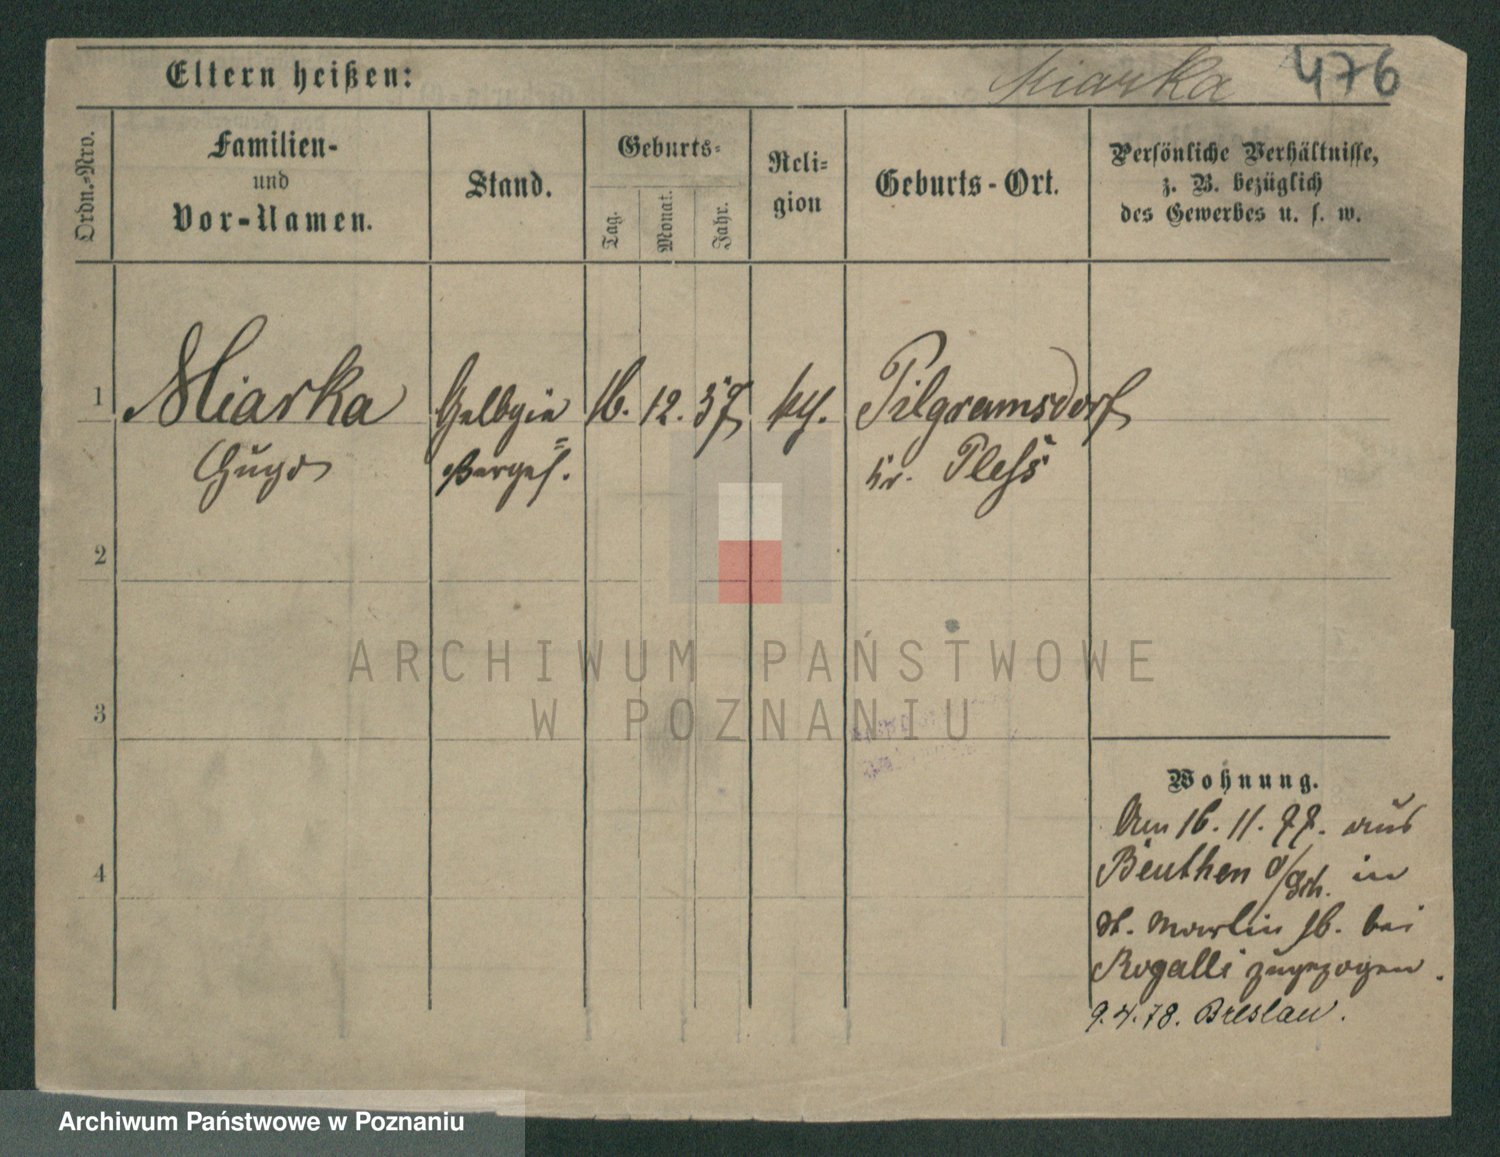 Eltern heißen:
Miarka 476
Ordn.-Nro.
Familien-
und
Vor-Namen.
Stand.
Geburts-
Tag.
Monat.
Jahr.
Reli-
gion
Geburts-Ort.
Persönliche Verhältnisse,
z. B. bezüglich
des Gewerbes u. s. w.
1 Miarka Gelbgie= 16. 12. 57 kth. Pilgramsdorf
Hugo ßerges. Kr. Pleß
2
3
4
ARCHIWUM PAŃSTWOWE
W POZNANIU
Wohnung.
Am 16. 11. 77. aus
Beuthen O/Sch. in
St. Martin 16. bei
Rogalli zugezogen.
9.4.78. Breslau.
Archiwum Państwowe w Poznaniu